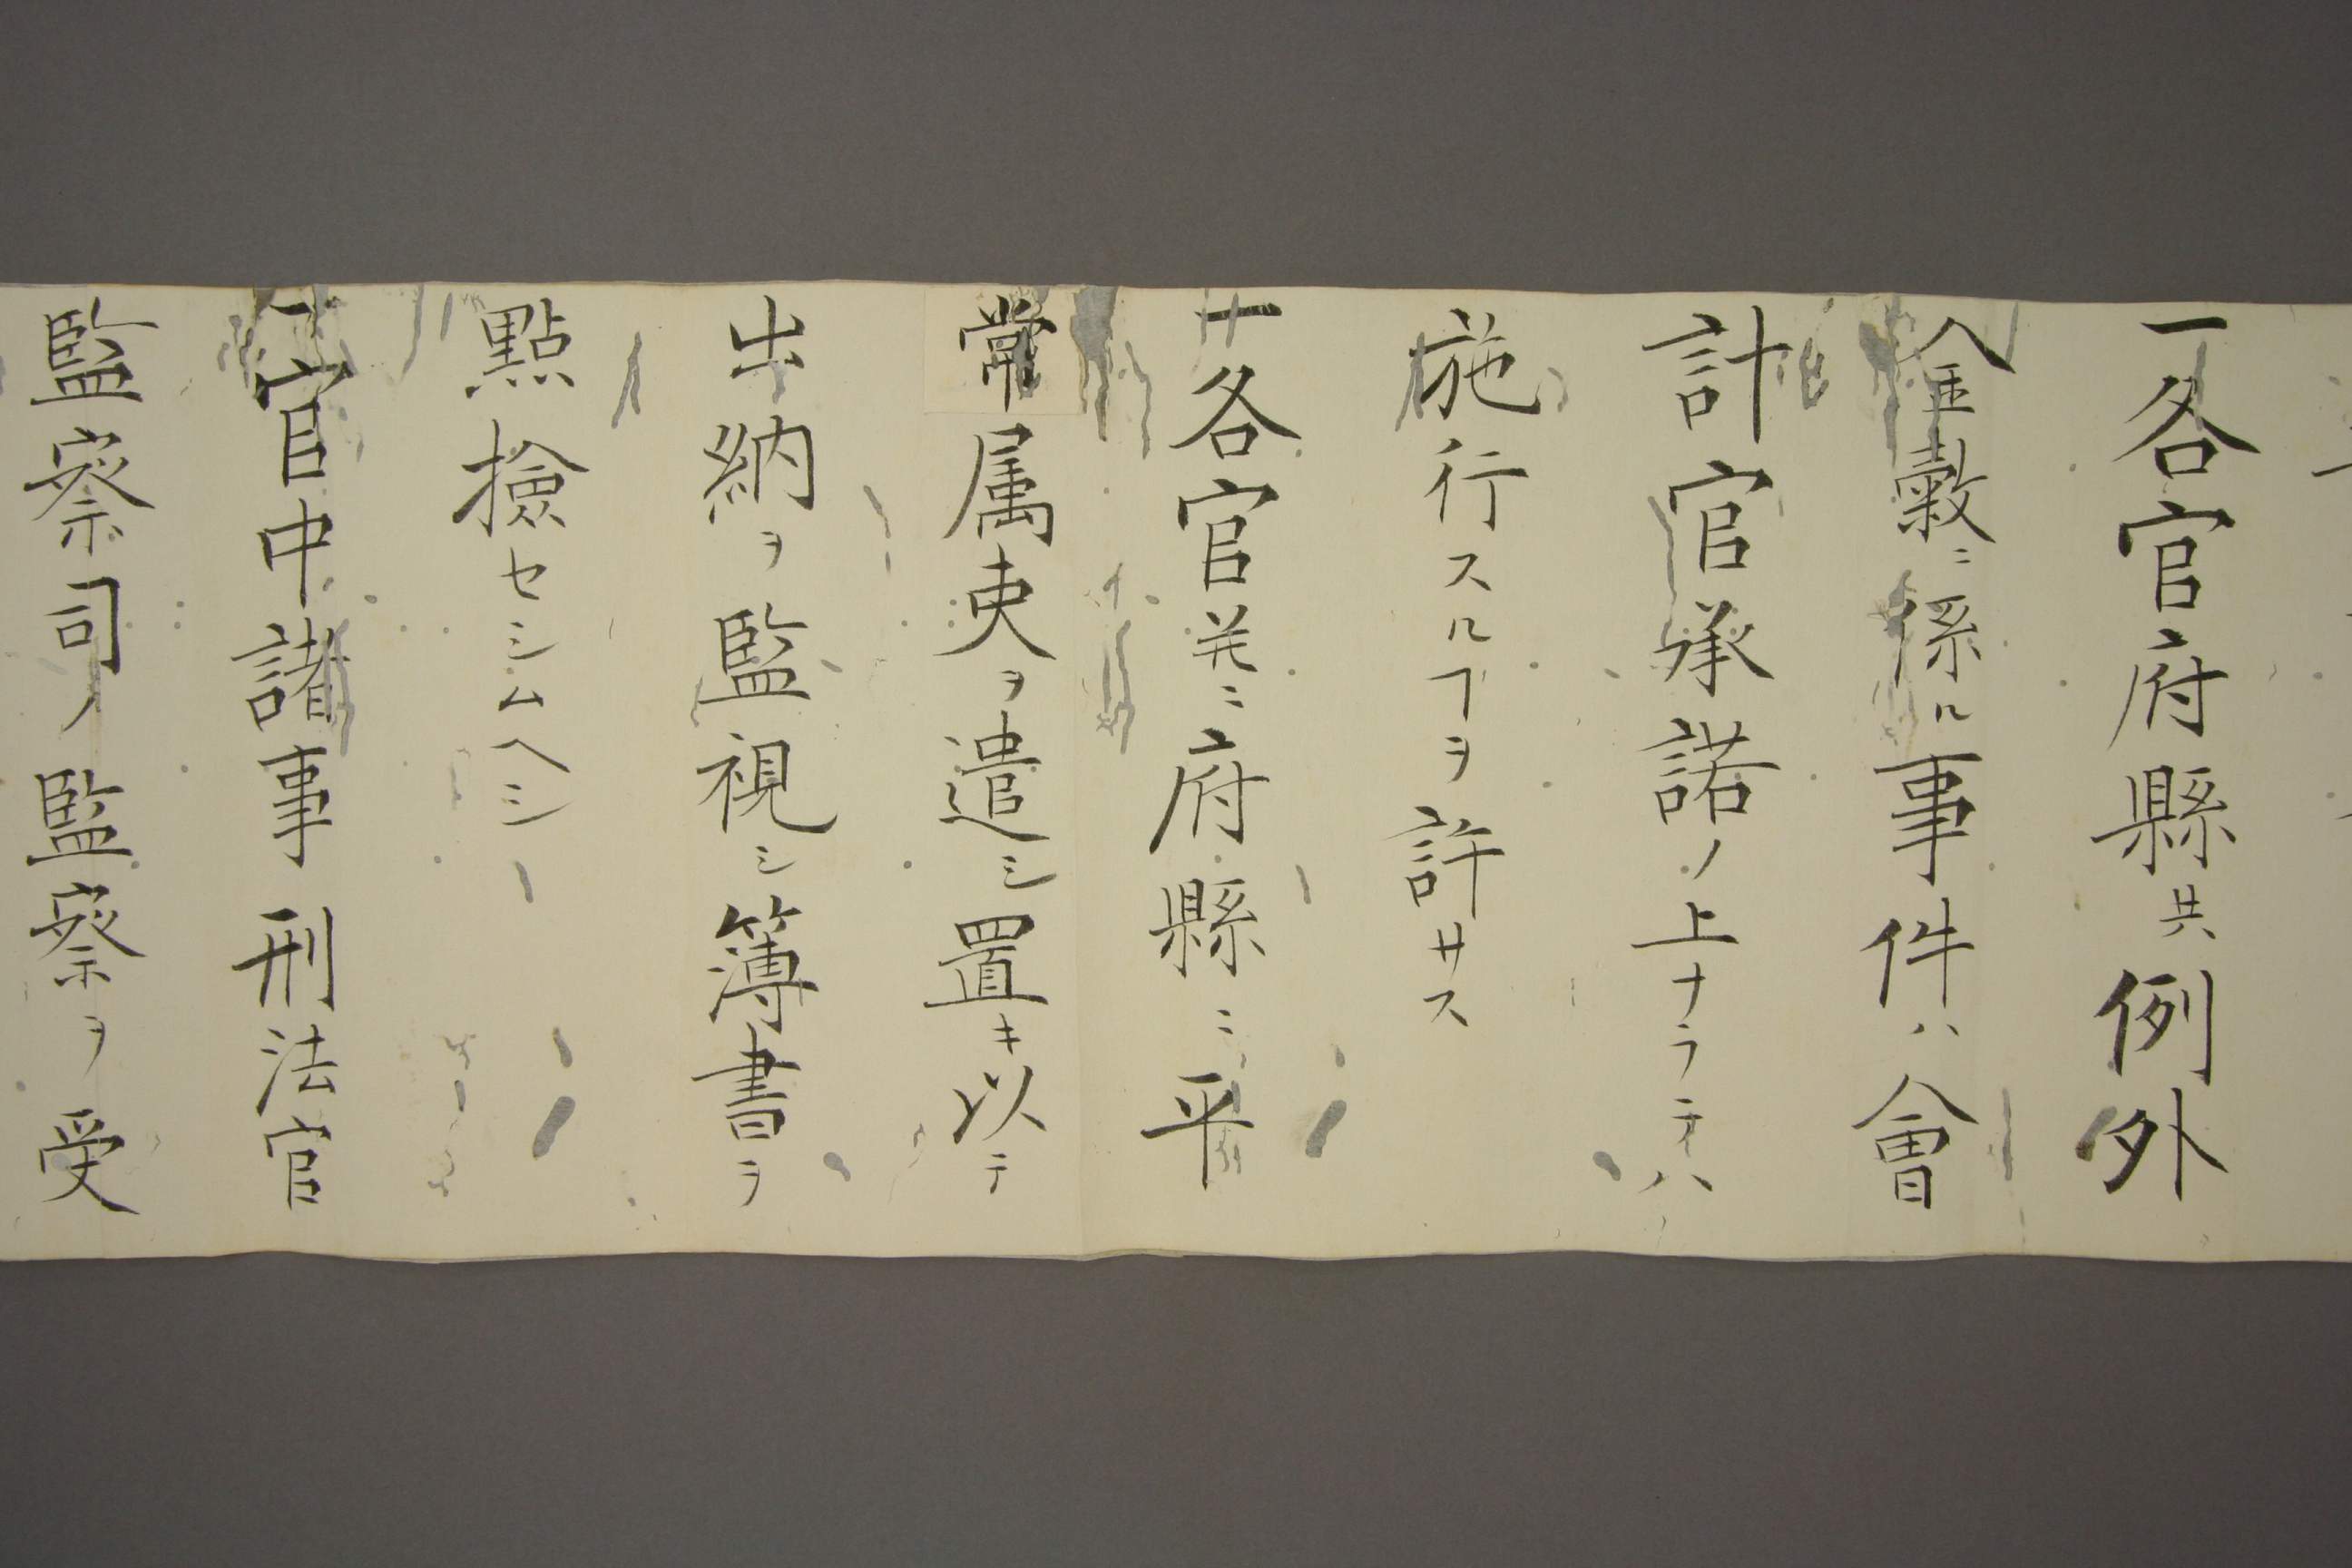 一各官府縣共例外
金穀ニ係ル事件ハ會
計官承諾ノ上ナラテハ
施行スルヿヲ許サス
一各官并ニ府縣ニ平
常属吏ヲ遣シ置キ以テ
出納ヲ監視シ簿書ヲ
點撿セシムヘシ
一官中諸事刑法官
監察司ノ監察ヲ受